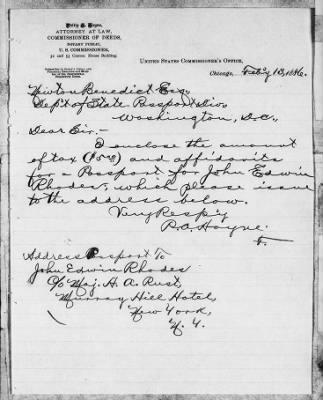 ATTORNEY AT LAW,
COMMISSIONER OF DEEDS,
NOTARY PUBLIC,
U. S. COMMISSIONER,
UNITED STATES COMMISSIONER'S OFFICE,
Chicago, 13, 1886.
Newton Benedict Esq,
Dep't of State Passport Div,
Washington, D.C,
Dear Sir:-
I enclose the amount
of tax and affidavits
for a Passport for John Edwin
Rhodes, which please issue
to the address below.
Very Resp'y
P. A. Hoyne.
Address Passport To
John Edwin Rhodes
c/o Maj. H. A. Rust,
Murray Hill Hotel,
New York,
N. Y.